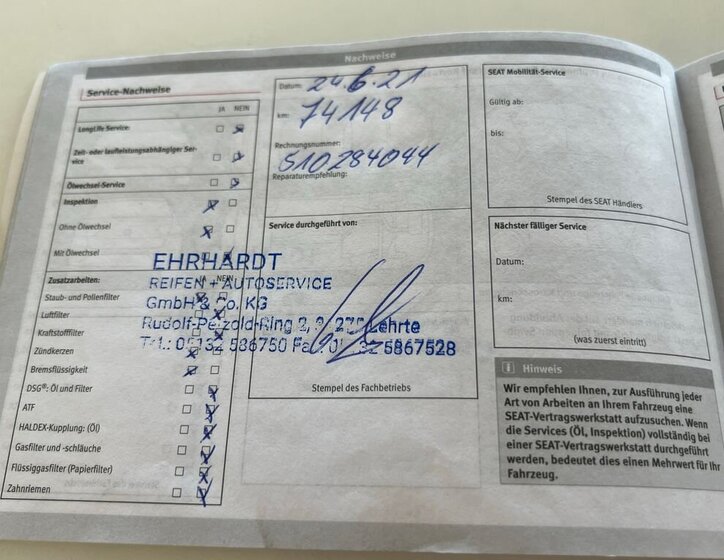 Nachweise
Service-Nachweise
JA NEIN
LongLife Service:
Zeit- oder laufleistungsabhängiger Ser-
vice
Ölwechsel-Service
Inspektion
Ohne Ölwechsel
Mit Ölwechsel
Zusatzarbeiten: JA NEIN
Staub- und Pollenfilter
Luftfilter
Kraftstofffilter
Zündkerzen
Bremsflüssigkeit
DSG®: Öl und Filter
ATF
HALDEX-Kupplung: (Öl)
Gasfilter und -schläuche
Flüssiggasfilter (Papierfilter)
Zahnriemen
Datum: 24.6.21
km: 74148
Rechnungsnummer:
510284044
Reparaturempfehlung:
Service durchgeführt von:
EHRHARDT
REIFEN + AUTOSERVICE
GmbH & Co. KG
Rudolf-Petzold-Ring 2, Lehrte
586750 5867528
Stempel des Fachbetriebs
SEAT Mobilität-Service
Gültig ab:
bis:
Stempel des SEAT Händlers
Nächster fälliger Service
Datum:
km:
(was zuerst eintritt)
i Hinweis
Wir empfehlen Ihnen, zur Ausführung jeder
Art von Arbeiten an Ihrem Fahrzeug eine
SEAT-Vertragswerkstatt aufzusuchen. Wenn
die Services (Öl, Inspektion) vollständig bei
einer SEAT-Vertragswerkstatt durchgeführt
werden, bedeutet dies einen Mehrwert für Ihr
Fahrzeug.